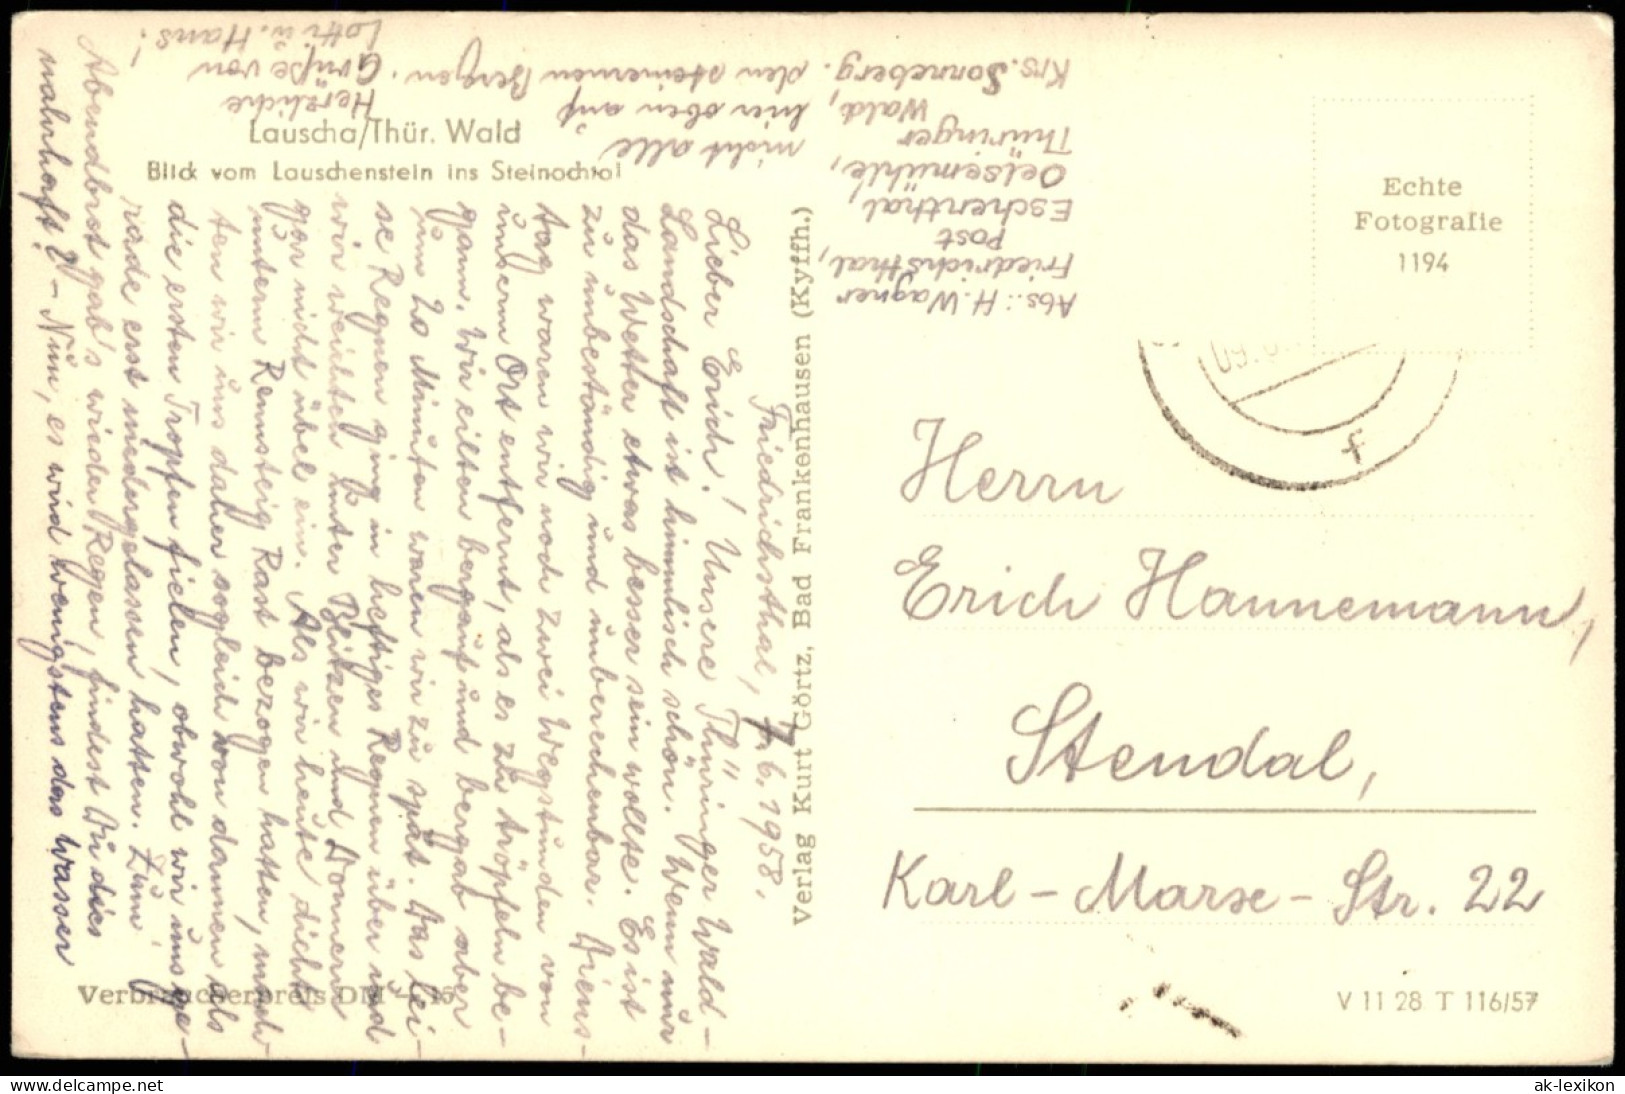 Lauscha/Thür. Wald
Blick vom Lauschenstein ins Steinachtal
Verlag Kurt Görtz, Bad Frankenhausen (Kyffh.)
Echte
Fotografie
1194
f
Herrn
Erich Hannemann,
Stendal,
Karl-Marx-Str. 22
V 11 28 T 116/57
Verbraucherpreis DM
Abs.: H. Wagner
Friedrichsthal,
Post
Eschenthal,
Oelsemühle,
Thüringer
Wald,
Krs. Sonneberg.
Friedrichsthal, 6.1958.
Lieber Erich! Unsere Thüringer Wald-
Landschaft ist himmlisch schön. Wenn nur
das Wetter etwas besser sein wollte. Es ist
zu unbeständig und unberechenbar. Diens-
tag waren wir noch zwei Wegstunden von
unserm Ort entfernt, als es zu tröpfeln be-
gann. Wir eilten bergauf und bergab aber
um 20 Minuten waren wir zu spät. Das lei-
se Regnen ging in heftiges Regnen über und
wir weichten unter Blitzen und Donnern
gar nicht übel ein. Als wir heute dicht
unterm Rennsteig Rast bezogen hatten, mach-
ten wir uns daher sogleich von dannen als
die ersten Tropfen fielen, obwohl wir uns ge-
rade erst niedergelassen hatten. Zum
Abendbrot gab's wieder Regen, findest Du dies
nahrhaft? - Nun, es wird wenigstens das Wasser
nicht alle
hier oben auf
den steinernen Bergen.
Herzliche
Grüße von
Lotti u. Hans!
ak-lexikon
www.delcampe.net